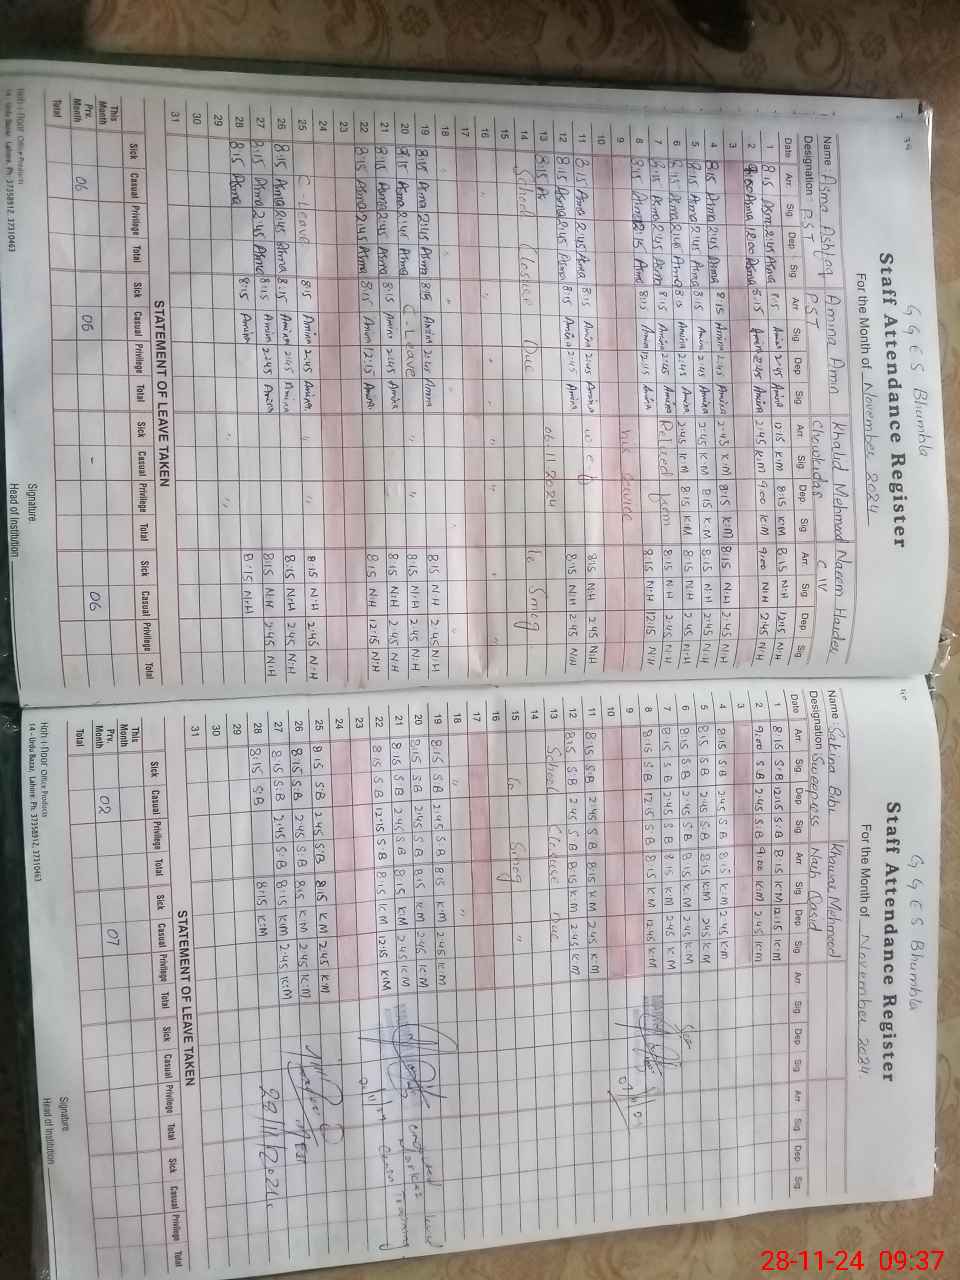 G G E S Bhumbla
Staff Attendance Register
For the Month of November 2024
Name: Asma Ashfaq Amina Amin Khalid Mehmood Naeem Haider
Designation: PST PST Chowkidar C IV
Date Arr Sig Dep Sig Arr Sig Dep Sig Arr Sig Dep Sig Arr Sig Dep Sig
1 8:15 Asma 2:45 Asma 8:15 Amina 2:45 Amina 12:15 K.M 8:15 K.M 8:15 N.H 12:15 N.H
2 Asma 12:00 Asma 8:15 Amina 2:45 Amina 2:45 K.M 9:00 K.M 9:00 N.H 2:45 N.H
3
4 8:15 Asma 2:45 Asma 8:15 Amina 2:45 Amina 2:45 K.M 8:15 K.M 8:15 N.H 2:45 N.H
5 8:15 Asma 2:45 Asma 8:15 Amina 2:45 Amina 2:45 K.M 8:15 K.M 8:15 N.H 2:45 N.H
6 8:15 Asma 2:45 Asma 8:15 Amina 2:45 Amina 2:45 K.M 8:15 K.M 8:15 N.H 2:45 N.H
7 8:15 Asma 2:45 Asma 8:15 Amina 2:45 Amina from 8:15 N.H 2:45 N.H
8 8:15 Asma 12:15 Asma 8:15 Amina 12:15 Amina 8:15 N.H 12:15 N.H
9 his service
10
11 8:15 Asma 2:45 Asma 8:15 Amina 2:45 Amina w.e.f 8:15 N.H 2:45 N.H
12 8:15 Asma 2:45 Asma 8:15 Amina 2:45 Amina 8:15 N.H 12:45 N.H
13 8:15 As 06.11.2024
14 School Closure Due to Smog
15
16
17
18
19 8:15 Asma 2:45 Asma 8:15 Amina 2:45 Amina 8:15 N.H 2:45 N.H
20 8:15 Asma 2:45 Asma C. Leave 8:15 N.H 2:45 N.H
21 8:15 Asma 2:45 Asma 8:15 Amina 2:45 Amina 8:15 N.H 2:45 N.H
22 8:15 Asma 2:45 Asma 8:15 Amina 12:15 Amina 8:15 N.H 12:15 N.H
23
24
25 C. Leave 8:15 Amina 2:45 Amina 8:15 N.H 2:45 N.H
26 8:15 Asma 2:45 Asma 8:15 Amina 2:45 Amina 8:15 N.H 2:45 N.H
27 8:15 Asma 2:45 Asma 8:15 Amina 2:45 Amina 8:15 N.H 2:45 N.H
28 8:15 Asma 8:15 Amina 8:15 N.H
29
30
31
STATEMENT OF LEAVE TAKEN
Sick Casual Privilege Total Sick Casual Privilege Total Sick Casual Privilege Total Sick Casual Privilege Total
This Month
Prv. Month 06 06 - 06
Total
Signature.
Head of Institution
14 - Urdu Bazar, Lahore. Ph: 37358912, 37310463
G G E S Bhumbla
Staff Attendance Register
For the Month of November 2024.
Name: Sakina Bibi Khawar Mehmood
Designation: Sweepress Naib Qasid
Date Arr Sig Dep Sig Arr Sig Dep Sig Arr Sig Dep Sig Arr Sig Dep Sig
1 8:15 S.B 12:15 S.B 8:15 K.M 12:15 K.M
2 9:00 S.B 2:45 S.B 9:00 K.M 2:45 K.M
3
4 8:15 S.B 2:45 S.B 8:15 K.M 2:45 K.M
5 8:15 S.B 2:45 S.B 8:15 K.M 2:45 K.M
6 8:15 S.B 2:45 S.B 8:15 K.M 2:45 K.M
7 8:15 S.B 2:45 S.B 8:15 K.M 2:45 K.M
8 8:15 S.B 12:15 S.B 8:15 K.M 12:45 K.M
9
10
11 8:15 S.B 2:45 S.B 8:15 K.M 2:45 K.M
12 8:15 S.B 2:45 S.B 8:15 K.M 2:45 K.M
13 School Closure Due
14
15 to Smog
16
17
18
19 8:15 S.B 2:45 S.B 8:15 K.M 2:45 K.M
20 8:15 S.B 2:45 S.B 8:15 K.M 2:45 K.M
21 8:15 S.B 2:45 S.B 8:15 K.M 2:45 K.M
22 8:15 S.B 12:15 S.B 8:15 K.M 12:15 K.M
23
24
25 8:15 S.B 2:45 S.B 8:15 K.M 2:45 K.M
26 8:15 S.B 2:45 S.B 8:15 K.M 2:45 K.M
27 8:15 S.B 2:45 S.B 8:15 K.M 2:45 K.M
28 8:15 S.B 8:15 K.M
29
30
31
28/11/2024
STATEMENT OF LEAVE TAKEN
Sick Casual Privilege Total Sick Casual Privilege Total Sick Casual Privilege Total Sick Casual Privilege Total
This Month
Prv. Month 02 07
Total
Signature
Head of Institution
14 - Urdu Bazar, Lahore. Ph: 37358912, 37310463
28-11-24 09:37